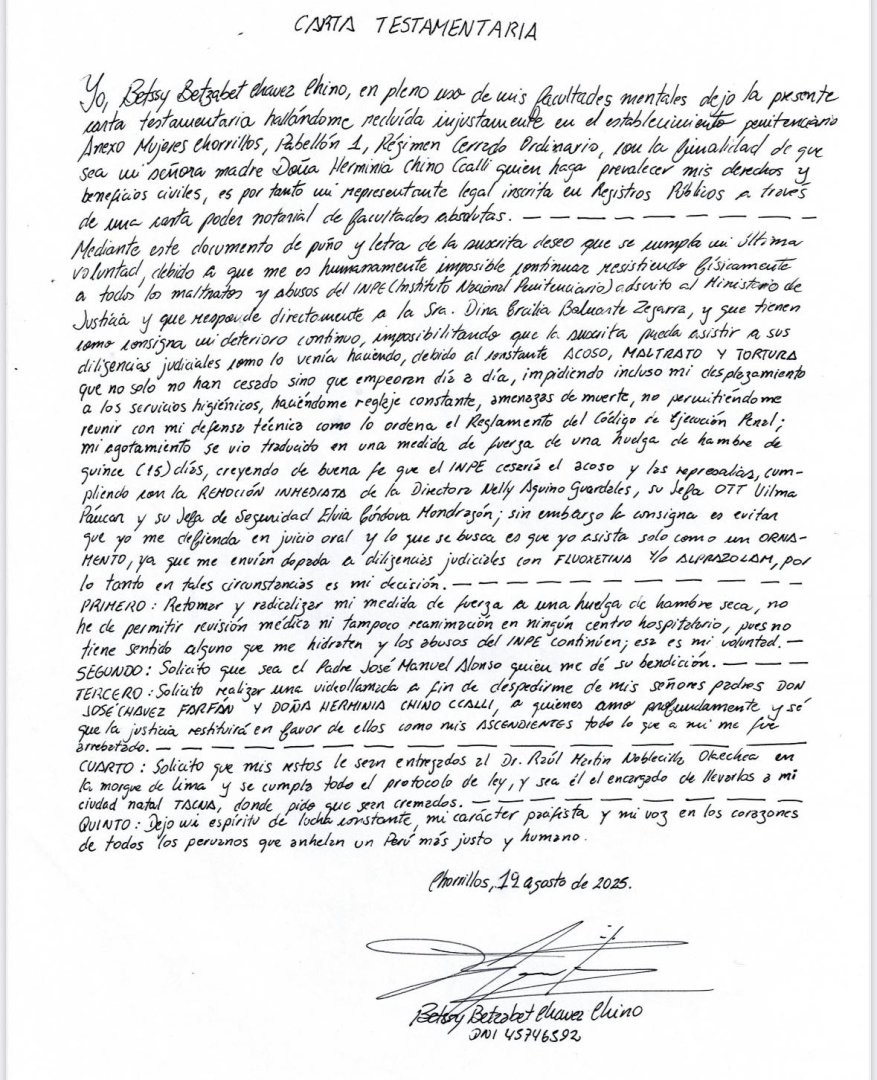 CARTA TESTAMENTARIA
Yo, Betssy Betzabet Chavez Chino, en pleno uso de mis facultades mentales dejo la presente
carta testamentaria hallándome recluida injustamente en el establecimiento penitenciario
Anexo Mujeres Chorrillos, Pabellón 1, Régimen Cerrado Ordinario, con la finalidad de que
sea mi señora madre Doña Herminia Chino Ccalli quien haga prevalecer mis derechos y
beneficios civiles, es por tanto mi representante legal inscrita en Registros Públicos a través
de una carta poder notarial de facultades absolutas. — — — — — — — — — —
Mediante este documento de puño y letra de la suscrita deseo que se cumpla mi última
voluntad, debido a que me es humanamente imposible continuar resistiendo físicamente
a todos los maltratos y abusos del INPE (Instituto Nacional Penitenciario) adscrito al Ministerio de
Justicia y que responde directamente a la Sra. Dina Ercilia Boluarte Zegarra, y que tienen
como consigna mi deterioro continuo, imposibilitando que la suscrita pueda asistir a sus
diligencias judiciales como lo venía haciendo, debido al constante ACOSO, MALTRATO Y TORTURA
que no solo no han cesado sino que empeoran día a día, impidiendo incluso mi desplazamiento
a los servicios higiénicos, haciéndome reglaje constante, amenazas de muerte, no permitiéndome
reunir con mi defensa técnica como lo ordena el Reglamento del Código de Ejecución Penal;
mi agotamiento se vio traducido en una medida de fuerza de una huelga de hambre de
quince (15) días, creyendo de buena fe que el INPE cesaría el acoso y las represalias, cum-
pliendo con la REMOCIÓN INMEDIATA de la Directora Nelly Aquino Guardales, su Jefa OTT Vilma
Páucar y su Jefa de Seguridad Elvia Córdova Mondragón; sin embargo la consigna es evitar
que yo me defienda en juicio oral y lo que se busca es que yo asista solo como un ORNA-
MENTO, ya que me envían dopada a diligencias judiciales con FLUOXETINA Y/O ALPRAZOLAM, por
lo tanto en tales circunstancias es mi decisión. — — — — — — — — — — —
PRIMERO: Retomar y radicalizar mi medida de fuerza a una huelga de hambre seca, no
he de permitir revisión médica ni tampoco reanimación en ningún centro hospitalario, pues no
tiene sentido alguno que me hidraten y los abusos del INPE continúen; esa es mi voluntad. —
SEGUNDO: Solicito que sea el Padre José Manuel Alonso quien me dé su bendición. — — — —
TERCERO: Solicito realizar una videollamada a fin de despedirme de mis señores padres DON
JOSÉ CHAVEZ FARFÁN Y DOÑA HERMINIA CHINO CCALLI, a quienes amo profundamente y sé
que la justicia restituirá en favor de ellos como mis ASCENDIENTES todo lo que a mi me fue
arrebatado. — — — — — — — — — — — — — — — — — — — —
CUARTO: Solicito que mis restos le sean entregados al Dr. Raúl Martin Noblecilla Olaechea en
la morgue de Lima y se cumpla todo el protocolo de ley, y sea él el encargado de llevarlos a mi
ciudad natal TACNA, donde pido que sean cremados. — — — — — — — — — —
QUINTO: Dejo mi espíritu de lucha constante, mi carácter pacifista y mi voz en los corazones
de todos los peruanos que anhelan un Perú más justo y humano.
Chorrillos, 19 agosto de 2025.
Betssy Betzabet Chavez Chino
DNI 45746592